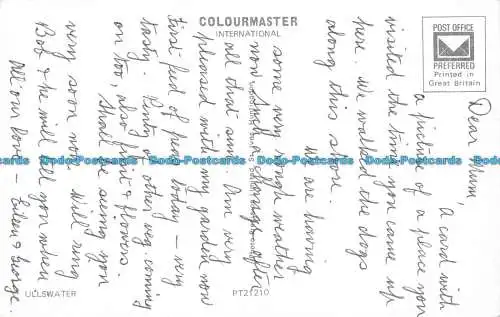 COLOURMASTER
INTERNATIONAL
POST OFFICE
PREFERRED
Printed in
Great Britain
Dear Mum,
a card with
a picture of a place you
visited the time you came up
here. We walked the dogs
along this shore.
We are having
some very rough weather
now. Such a change after
all that sun. Am very
pleased with my garden now
First feed of peas today – very
tasty. Plenty of other veg. coming
on too, also fruit & flowers.
Shall be seeing you
very soon now. Will ring
Bob & he will tell you when
All our love – Eileen & George
ULLSWATER
PT21210